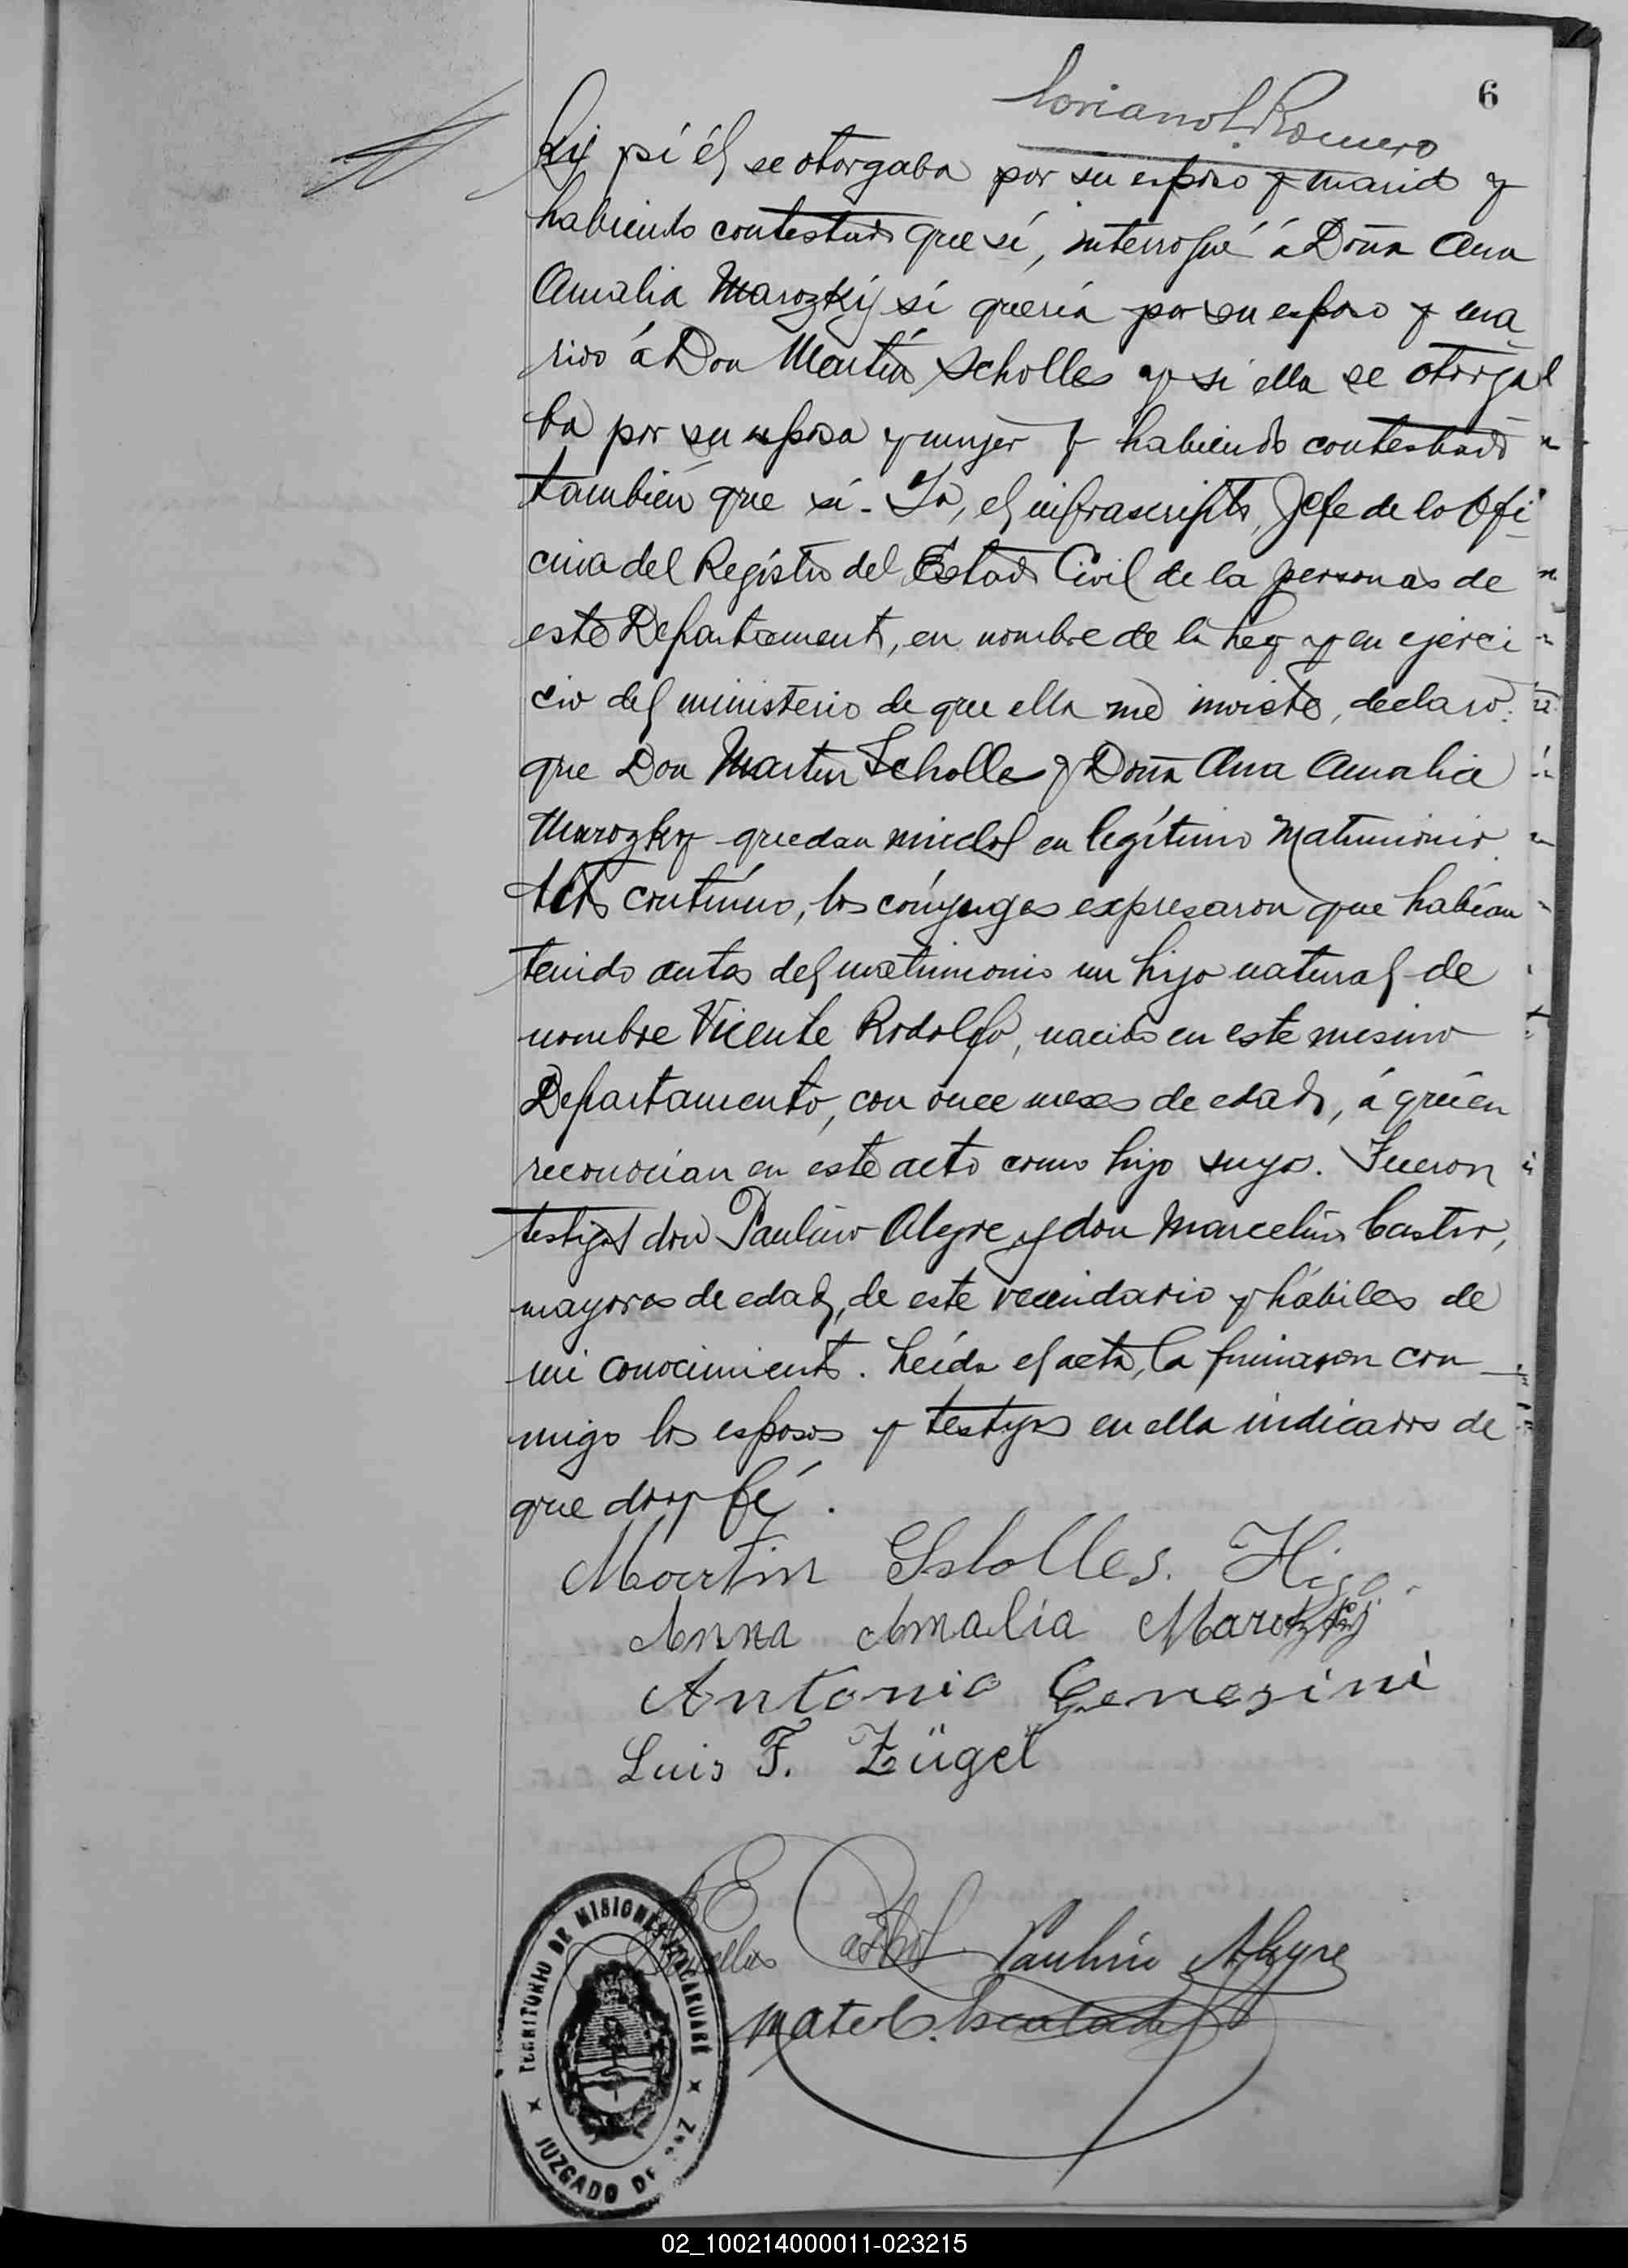 6
Romero
ky si él se otorgaba por su esposo y marido y
habiendo contestado que sí, interrogué á Doña Ana
Amalia Marozky si quería por su esposo y ma
rido á Don Martín Scholles y si ella se otorga
ba por su esposa y mujer y habiendo contestado
también que sí. Yo, el infrascripto, Jefe de la Ofi
cina del Registro del Estado Civil de la personas de
este Departamento, en nombre de la Ley y en ejerci
cio del ministerio de que ella me inviste, declaro:
que Don Martin Scholles y Doña Ana Amalia
Marozky quedan unidos en legítimo matrimonio.
Acto contínuo, los cónyuges expresaron que habían
tenido antes del matrimonio un hijo natural de
nombre Vicente Rodolfo, nacido en este mismo
Departamento, con once meses de edad, á quién
reconocían en este acto como hijo suyo. Fueron
testigos don Paulino Alegre y don Marcelino Castro,
mayores de edad, de este vecindario y hábiles de
mi conocimiento. Leída el acta, la firmaron con
migo los esposos y testigos en ella indicados de
que doy fé.
Martin Scholles. Hijo.
Anna Amalia Marotzkij
Antonio Genesini
Luis F. Zügel
Paulino Alegre
Mateo
TERRITORIO DE MISIONES
JUZGADO DE PAZ
02_100214000011-023215